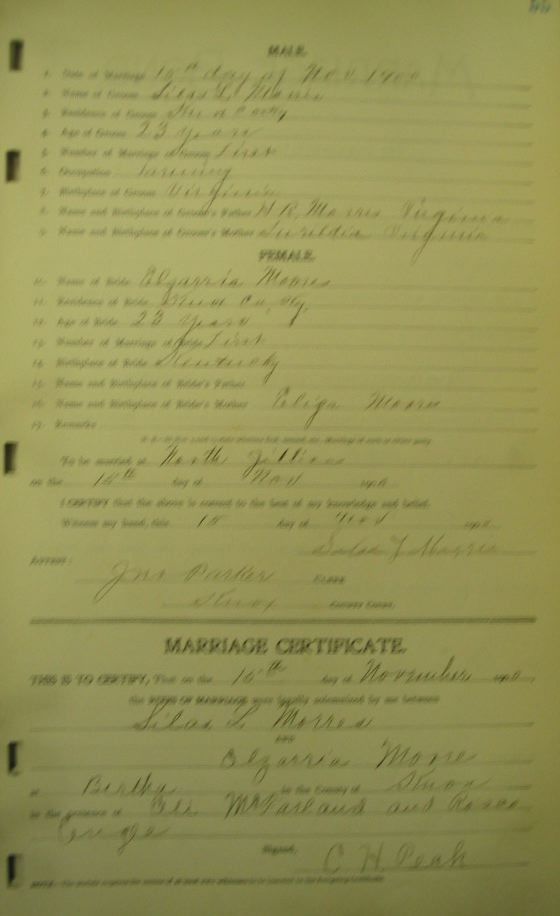 MALE.
1. Date of Marriage 15th day of Nov 1900
2. Name of Groom Silas L. Morris
3. Residence of Groom Knox County
4. Age of Groom 23 years
5. Number of Marriage of Groom First
6. Occupation Farming
7. Birthplace of Groom Virginia
8. Name and Birthplace of Groom's Father H R Morris Virginia
9. Name and Birthplace of Groom's Mother Virginia
FEMALE.
10. Name of Bride Elzarria Moore
11. Residence of Bride Knox Co, Ky,
12. Age of Bride 23 years
13. Number of Marriage of Bride First
14. Birthplace of Bride Kentucky
15. Name and Birthplace of Bride's Father
16. Name and Birthplace of Bride's Mother Moore
17. Remarks
To be married at North
on the 15th day of Nov 190
I CERTIFY that the above is correct to the best of my knowledge and belief.
Witness my hand, this 15 day of Nov 190
Silas L Morris
ATTEST:
Jno Parker CLERK
Knox COUNTY COURT.
MARRIAGE CERTIFICATE.
THIS IS TO CERTIFY, That on the 15th day of November 1900,
the RITES OF MARRIAGE were legally solemnized by me between
Silas L Morres
AND
Elzarria Moore
at Bertha in the County of Knox
in the presence of McFarland and
Signed,
C. H. Peak